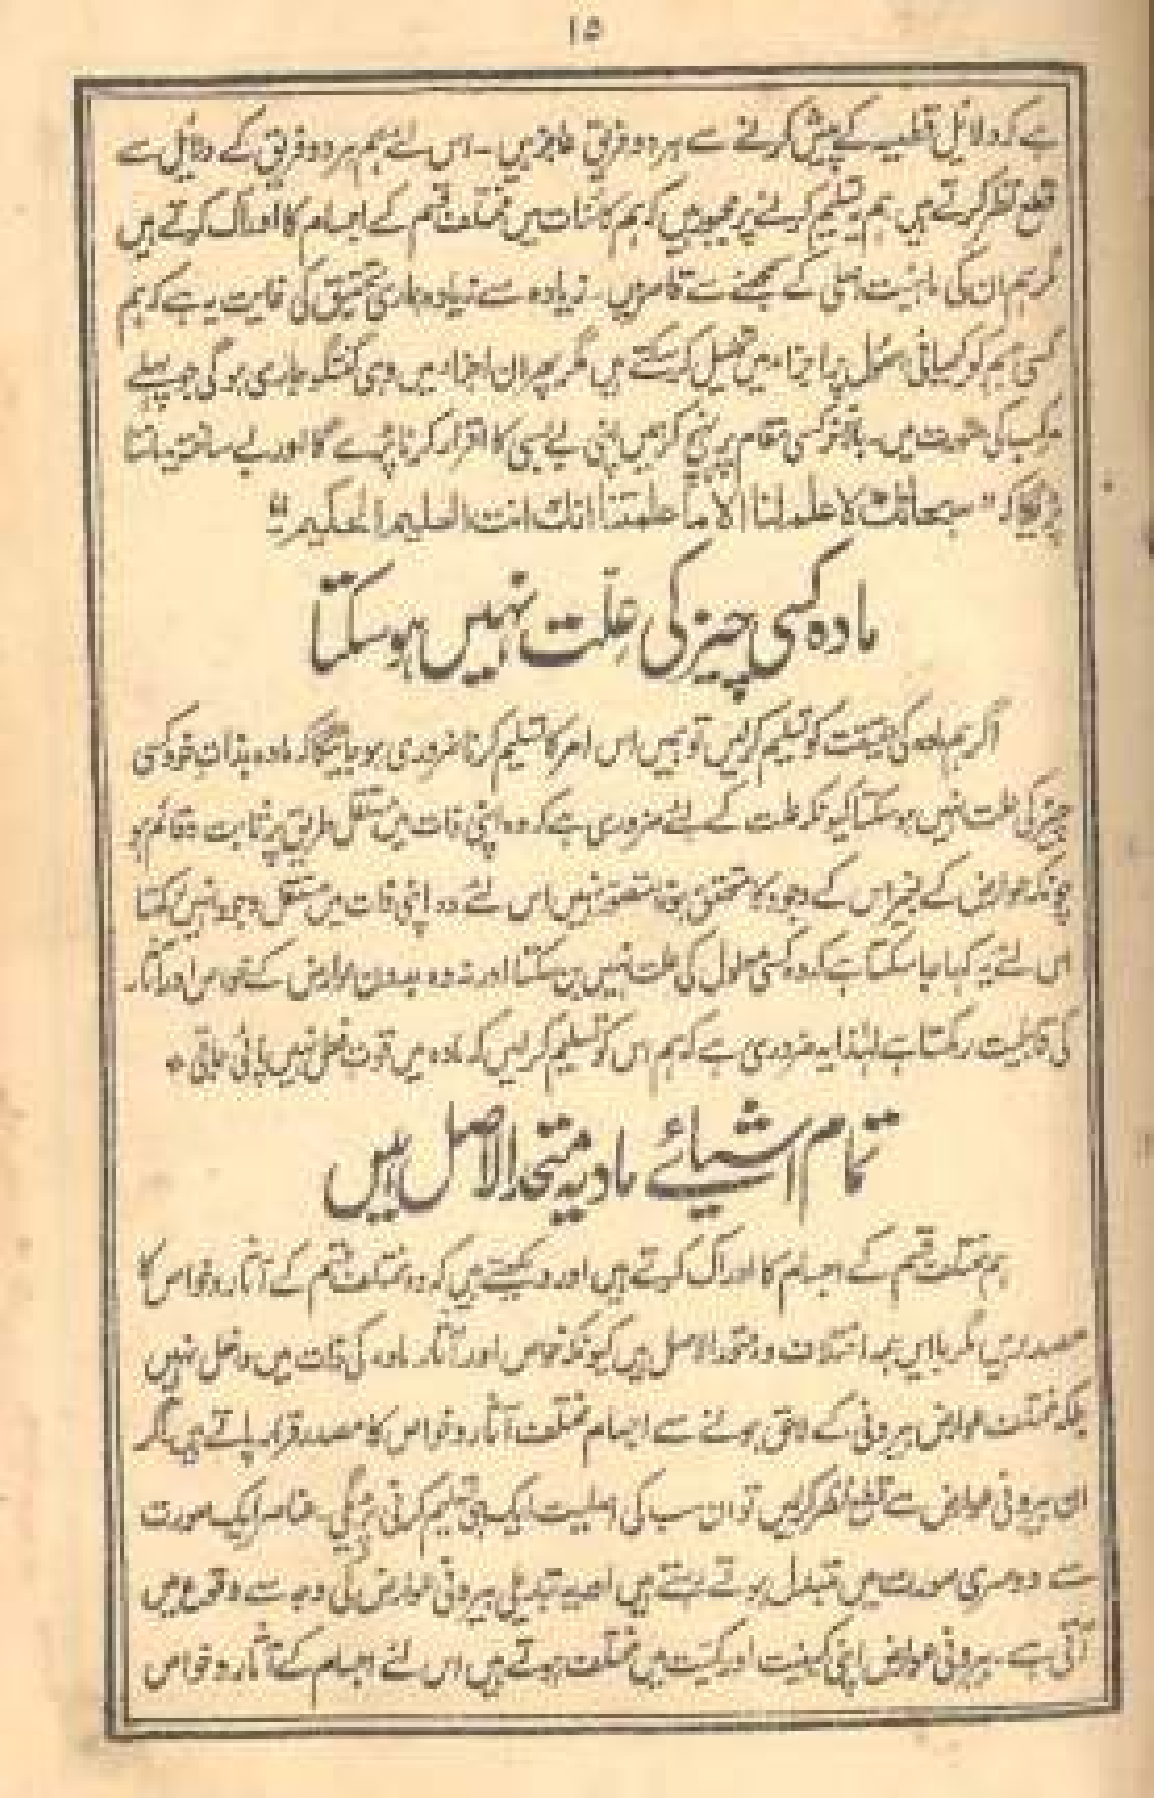 ۱۵
ہے کہ دلائل قطعیہ کے پیش کرنے سے ہر دو فریق عاجز ہیں ۔ اس لئے ہم ہر دو فریق کے دلائل سے
قطع نظر کرتے ہیں ہم یہ تسلیم کرنے پر مجبور ہیں کہ ہم کائنات میں مختلف قسم کے اجسام کا ادراک کرتے ہیں
مگر ہم ان کی ماہیت اصلی کے سمجھنے سے قاصر ہیں ۔ زیادہ سے زیادہ ہماری تحقیق کی غایت یہ ہے کہ ہم
کسی جسم کو کیمیائی اصول پر اجزاء میں تحلیل کر سکتے ہیں مگر پھر ان اجزاء میں وہی گفتگو جاری ہوگی جو پہلے
مرکب کی صورت میں۔ بالآخر کسی مقام پر پہنچ کر ہمیں اپنی بے بسی کا اقرار کرنا پڑے گا اور بے ساختہ کہنا
پڑیگا کہ "سبحانک لا علم لنا الا ما علمتنا انک انت العلیم الحکیم"
مادہ کسی چیز کی علّت نہیں ہو سکتا
اگر ہم مادہ کی حقیقت کو تسلیم کر لیں تو ہمیں اس امر کا تسلیم کرنا ضروری ہو جائیگا کہ مادہ بذات خود کسی
چیز کی علت نہیں ہو سکتا کیونکہ علت کے لئے ضروری ہے کہ وہ اپنی ذات میں مستقل طریق پر ثابت و قائم ہو
چونکہ عوارض کے بغیر اس کے وجود کا متحقق ہونا متصور نہیں اس لئے وہ اپنی ذات میں مستقل وجود نہیں رکھتا
اس لئے یہ کہا جا سکتا ہے کہ وہ کسی معلول کی علت نہیں بن سکتا اور نہ وہ بدون عوارض کے خواص اور آثار
کی قابلیت رکھتا ہے لہٰذا یہ ضروری ہے کہ ہم اس کو تسلیم کر لیں کہ مادہ میں قوت فعلی نہیں پائی جاتی *
تمام اشیائے مادیہ متحد الاصل ہیں
ہم مختلف قسم کے اجسام کا ادراک کرتے ہیں اور دیکھتے ہیں کہ وہ مختلف قسم کے آثار و خواص کا
مصدر ہیں مگر بااین ہمہ اختلاف وہ متحد الاصل ہیں کیونکہ خواص اور آثار مادہ کی ذات میں داخل نہیں
بلکہ مختلف عوارض بیرونی کے لاحق ہونے سے اجسام مختلف آثار و خواص کا مصدر قرار پاتے ہیں اگر
ان بیرونی عوارض سے قطع نظر کر لیں تو ان سب کی اصلیت ایک ہی تسلیم کرنی پڑیگی ۔ عناصر ایک صورت
سے دوسری صورت میں متبدل ہوتے رہتے ہیں اور یہ تبدیلی بیرونی عوارض کی وجہ سے وقوع میں
آتی ہے ۔ بیرونی عوارض اپنی کیفیت اور کمیت میں مختلف ہوتے ہیں اس لئے اجسام کے آثار و خواص